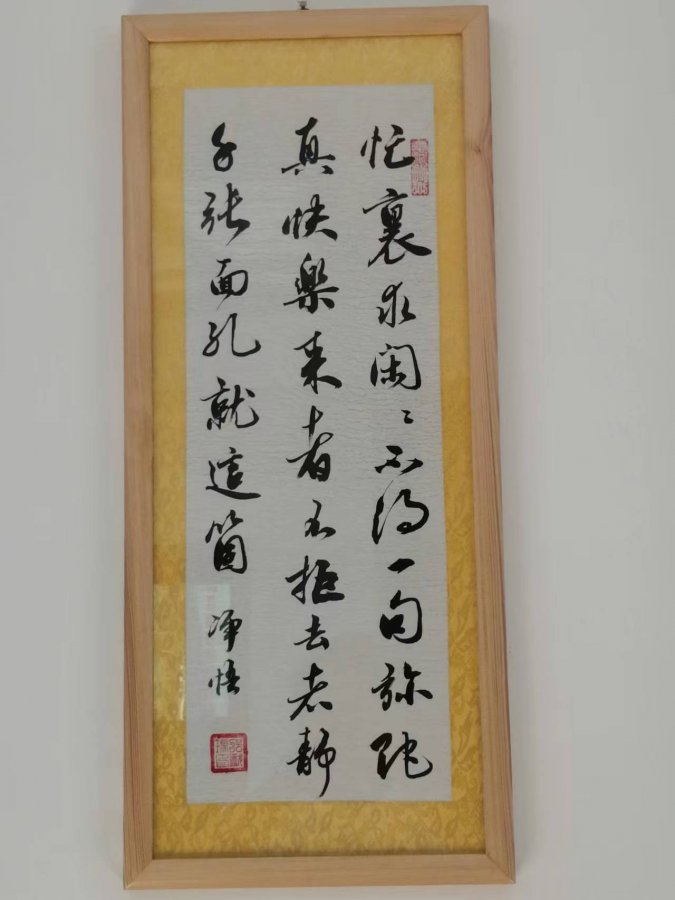 忙裏求閑〻不得一句弥陀
真快樂来者不拒去者静
千張面孔就這箇 净悟